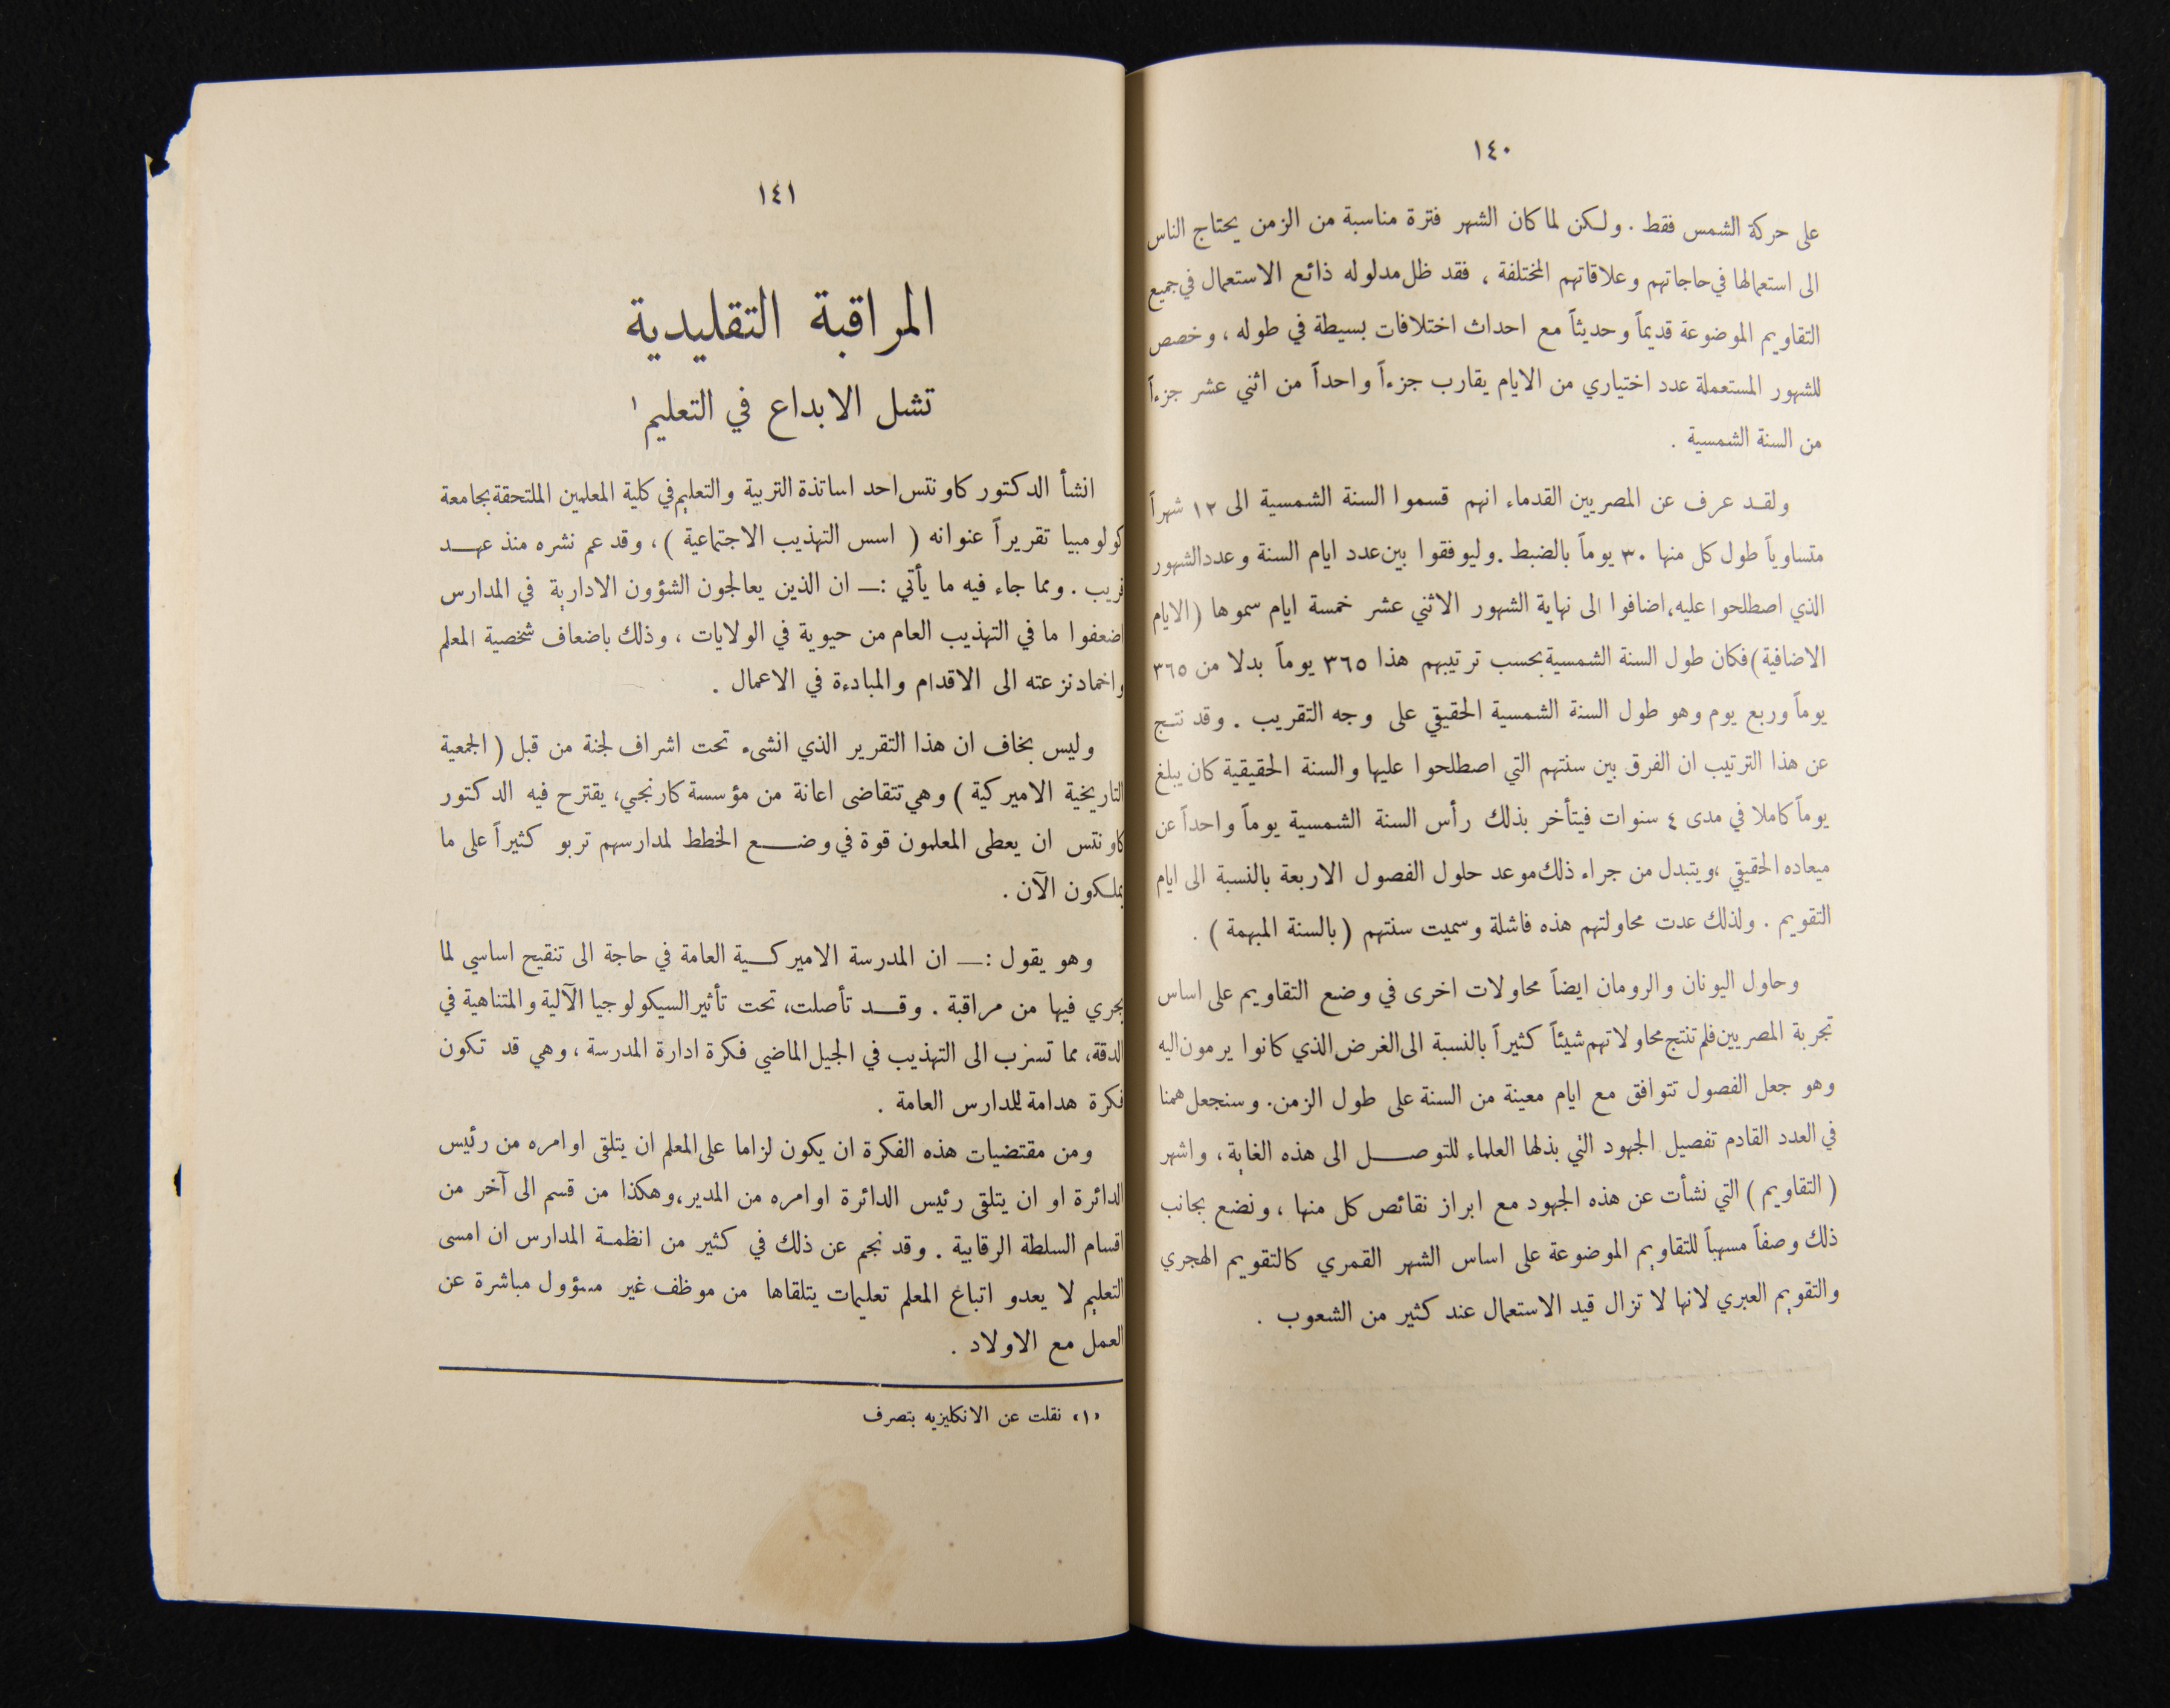 ١٤٠
على حركة الشمس فقط . ولكن لما كان الشهر فترة مناسبة من الزمن يحتاج الناس
الى استعمالها في حاجاتهم وعلاقاتهم المختلفة ، فقد ظل مدلوله ذائع الاستعمال في جميع
التقاويم الموضوعة قديماً وحديثاً مع احداث اختلافات بسيطة في طوله ، وخصص
للشهور المستعملة عدد اختياري من الايام يقارب جزءاً واحداً من اثني عشر جزءاً
من السنة الشمسية .
ولقد عرف عن المصريين القدماء انهم قسموا السنة الشمسية الى ١٢ شهراً
متساوياً طول كل منها ٣٠ يوماً بالضبط . وليوفقوا بين عدد ايام السنة وعدد الشهور
الذي اصطلحوا عليه ، اضافوا الى نهاية الشهور الاثني عشر خمسة ايام سموها ( الايام
الاضافية ) فكان طول السنة الشمسية بحسب ترتيبهم هذا ٣٦٥ يوماً بدلا من ٣٦٥
يوماً وربع يوم وهو طول السنة الشمسية الحقيقي على وجه التقريب . وقد نتج
عن هذا الترتيب ان الفرق بين سنتهم التي اصطلحوا عليها والسنة الحقيقية كان يبلغ
يوماً كاملا في مدى ٤ سنوات فيتأخر بذلك رأس السنة الشمسية يوماً واحداً عن
ميعاده الحقيقي ، ويتبدل من جراء ذلك موعد حلول الفصول الاربعة بالنسبة الى ايام
التقويم . ولذلك عدت محاولتهم هذه فاشلة وسميت سنتهم ( بالسنة المبهمة ) .
وحاول اليونان والرومان ايضاً محاولات اخرى في وضع التقاويم على اساس
تجربة المصريين فلم تنتج محاولاتهم شيئاً كثيراً بالنسبة الى الغرض الذي كانوا يرمون اليه
وهو جعل الفصول تتوافق مع ايام معينة من السنة على طول الزمن . وسنجعل همنا
في العدد القادم تفصيل الجهود التي بذلها العلماء للتوصل الى هذه الغاية ، واشهر
( التقاويم ) التي نشأت عن هذه الجهود مع ابراز نقائص كل منها ، ونضع بجانب
ذلك وصفاً مسهباً للتقاويم الموضوعة على اساس الشهر القمري كالتقويم الهجري
والتقويم العبري لانها لا تزال قيد الاستعمال عند كثير من الشعوب .
١٤١
المراقبة التقليدية
تشل الابداع في التعليم ١
انشأ الدكتور كاونتس احد اساتذة التربية والتعليم في كلية المعلمين الملتحقة بجامعة
كولومبيا تقريراً عنوانه ( اسس التهذيب الاجتماعية ) ، وقد عم نشره منذ عهد
قريب . ومما جاء فيه ما يأتي : — ان الذين يعالجون الشؤون الادارية في المدارس
اضعفوا ما في التهذيب العام من حيوية في الولايات ، وذلك باضعاف شخصية المعلم
واخماد نزعته الى الاقدام والمبادءة في الاعمال .
وليس بخاف ان هذا التقرير الذي انشىء تحت اشراف لجنة من قبل ( الجمعية
التاريخية الاميركية ) وهي تتقاضى اعانة من مؤسسة كارنجي ، يقترح فيه الدكتور
كاونتس ان يعطى المعلمون قوة في وضع الخطط لمدارسهم تربو كثيراً على ما
يملكون الآن .
وهو يقول : — ان المدرسة الاميركية العامة في حاجة الى تنقيح اساسي لما
يجري فيها من مراقبة . وقد تأصلت ، تحت تأثير السيكولوجيا الآلية والمتناهية في
الدقة ، مما تسرب الى التهذيب في الجيل الماضي فكرة ادارة المدرسة ، وهي قد تكون
فكرة هدامة للمدارس العامة .
ومن مقتضيات هذه الفكرة ان يكون لزاما على المعلم ان يتلقى اوامره من رئيس
الدائرة او ان يتلقى رئيس الدائرة اوامره من المدير ، وهكذا من قسم الى آخر من
اقسام السلطة الرقابية . وقد نجم عن ذلك في كثير من انظمة المدارس ان امسى
التعليم لا يعدو اتباع المعلم تعليمات يتلقاها من موظف غير مسؤول مباشرة عن
العمل مع الاولاد .
«١» نقلت عن الانكليزيه بتصرف